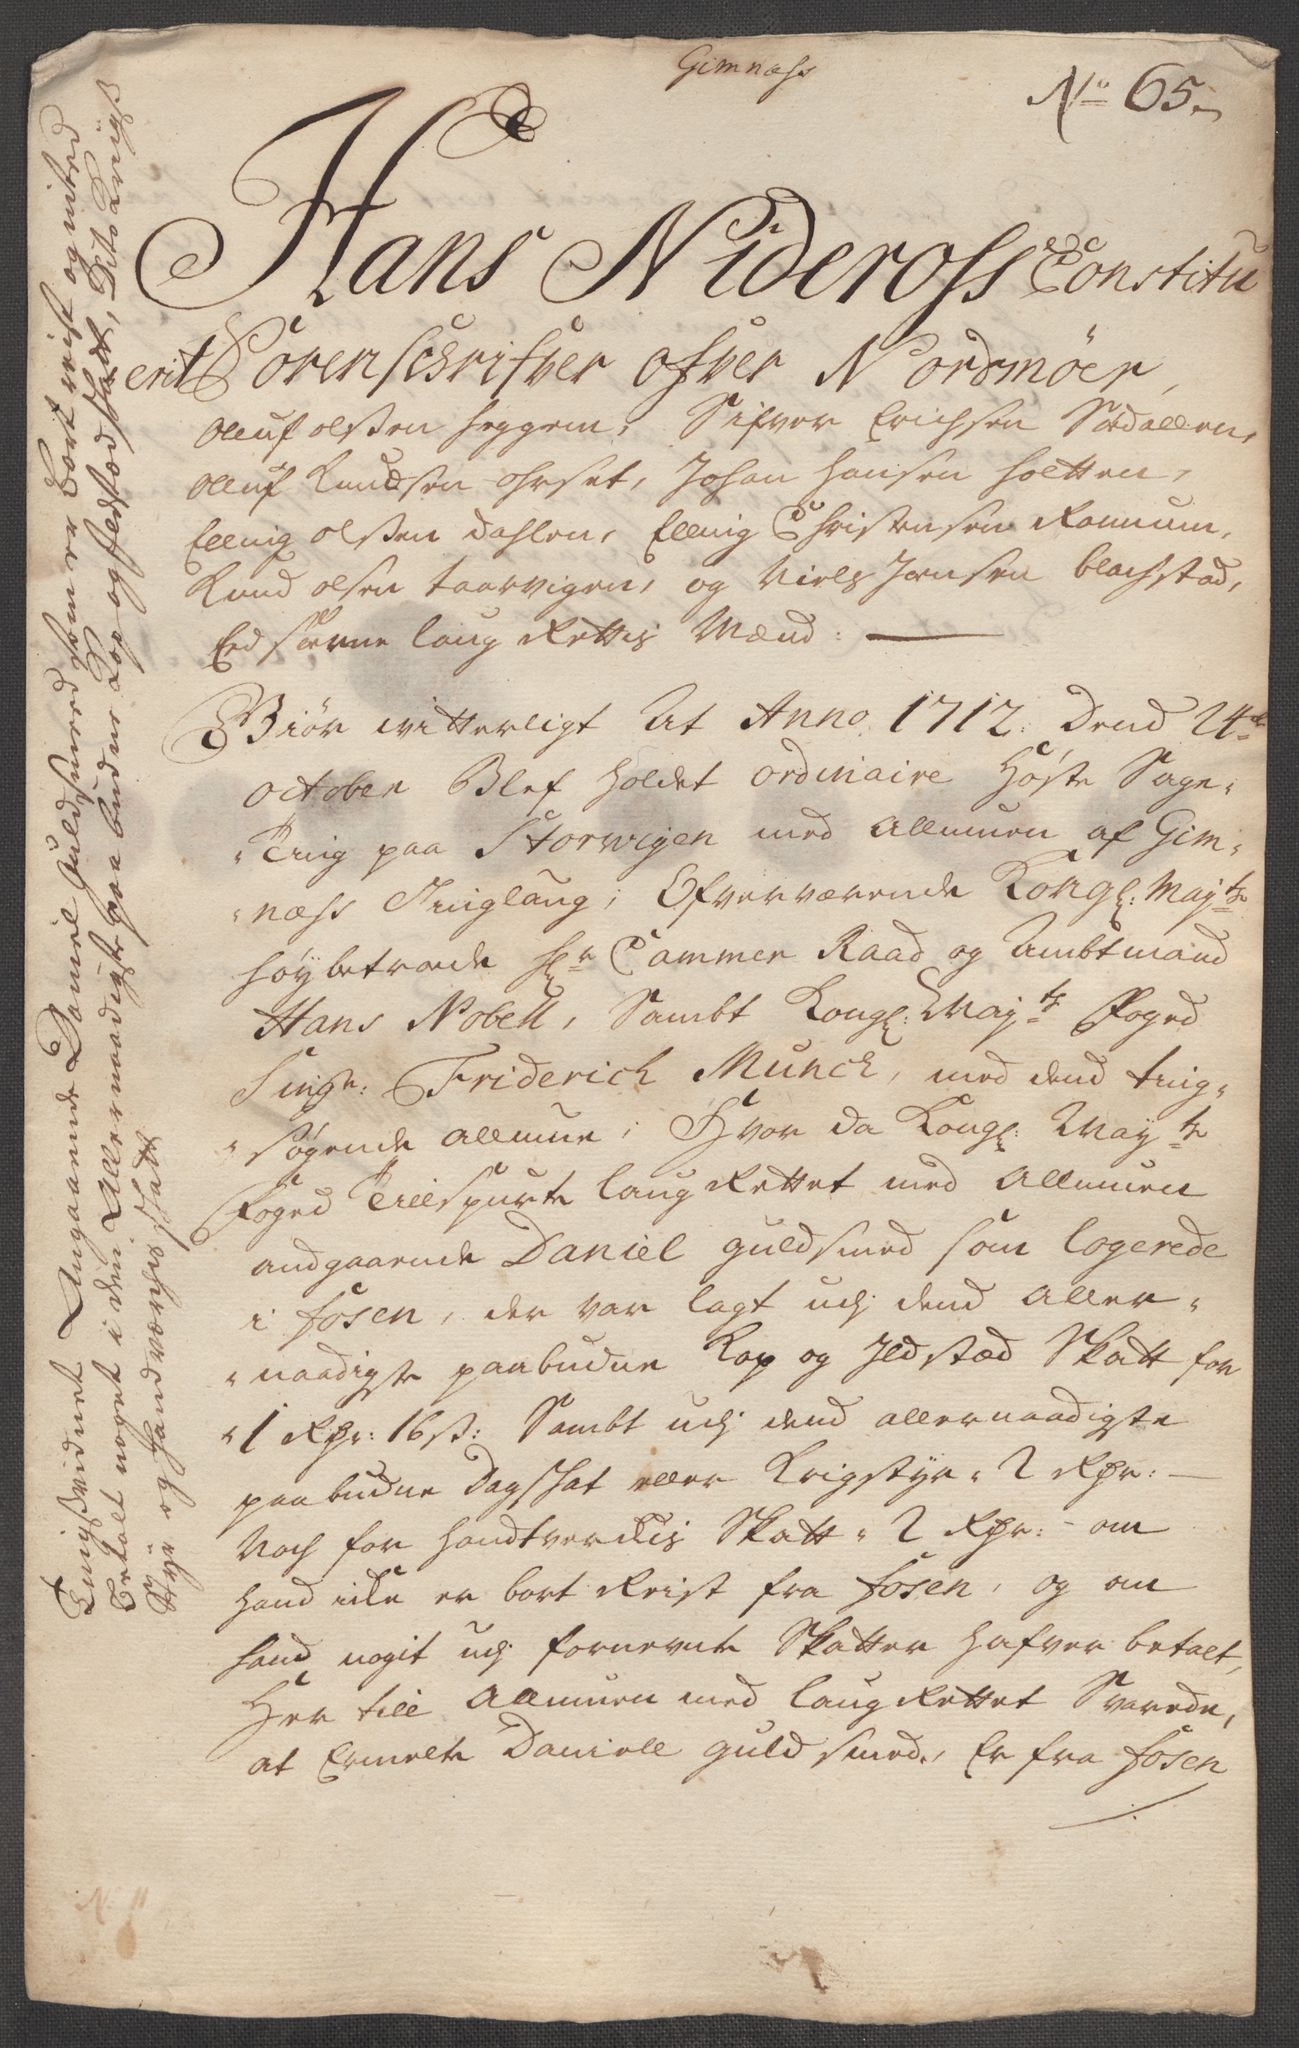 Gimnæhs
No 65.
Hans Nideross Constitu
erit Sorenschrifver ofver Nordmöer,
Oluf olsen heggem, Sifver Erichsen Sødallen,
Oluf Knudsen ohrset, Johan Hansen holtten,
Elling olsen dahlen, Elling Christensen Romum,
Knud olsen taarvigen, og Niels Jensen blachstad,
Eedsorne laug Rettis Mænd:
Giör witterligt At Anno 1712. Dend 24de
october Blef holdet ordinaire Høste Sage-
Ting paa Storwigen med Allmuen af Gim-
næhs Tinglaug; Ofververende Kongl: Mayts
høybetroede hr Cammer Raad og Ambtmand
Hans Nobell, Sambt Kongl: Mayts Foged
Singr: Friderich Munck, med dend ting-
søgende Allmue; Hvor da Kongl: Mayts
Foged Tillspurte laug Rettet med Allmuen
andgaaende Daniel guldsmed som logerede
i fosen, der var lagt udj dend Aller-
naadigste paabudne Kop og Ildstæd Skatt for
1 Rdr: 16 s: Sambt udj dend allernaadigste
paabudne Dagskat eller Krigstyr 2 Rdr:
Noch for handtverckis Skatt 2 Rdr: om
hand icke er bort Reist fra fosen, og om
hand nogit udj fornevnte Skatter hafver betalt,
Her till Allmuen med laug Rettet Svarede,
at Ermelte Daniell guldsmed, Er fra fosen
Tingsvidnet Angaaende Daniel Guldsmed som er Bort reist og intet
betalt noget i den Allernaadigst paa budne Kop og Ildstæd Skatt, Dito Krigs
Styr og Handværchs Skatt
N: 11